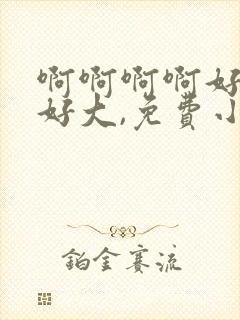 啊啊啊啊好
好大,免费小
铂金赛流